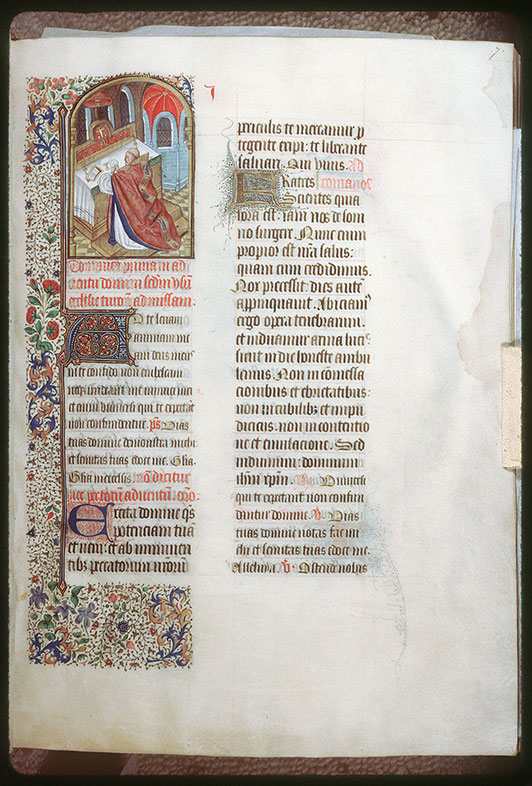 Dominica prima in ad
uentu domini scdm usū
ecclesie turoñ ad missam.
Ad te leuaui
animam me
am deus meus
in te confido non erubescam
neq; irrideant me inimici mei
et enim uniuersi qui te expectāt
non confundentur. ps Uias
tuas domine demonstra michi
et semitas tuas edoce me. Gl'a.
Excita domine qs
potenciam tuā
et ueni: et ab iminen
tibz peccatorum nrorum
periculis te mereamur p
tegente eripi: te liberante
saluari. Qui uiuis. Ad
Fratres romanos
Scientes quia
hora est iam nos de som
no surgere. Nunc enim
propior est nrā salus:
quam cum credidimus.
Nox precessit: dies autē
appropinquauit. Abiciamꝰ
ergo opera tenebrarum.
et induamur arma lucis
sicut in die honeste ambu
lemus. Non in comessa
cionibus et ebrietatibus:
non in cubilibz et impu
diciciis. non in contentio
ne et emulacione. Sed
induimini: dominum
ihm xpm. Uniuersi
qui te expectant non confun
dentur domine. ℣. Uias
tuas domine notas fac mi
chi et semitas tuas edoce me.
Alleluya. ℣. Ostende nobis